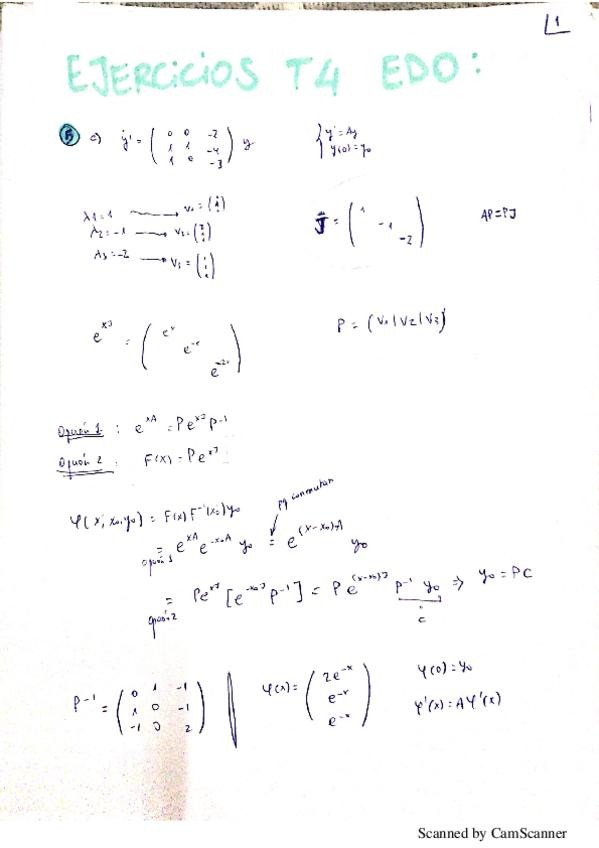 1
EJERCICIOS T4 EDO:
5 c) y' = ( 0 0 -2 / 1 1 -4 / 1 0 -3 ) y { y'=Ay
y(0)=y0
λ1=1 → v1 =
λ2=-1 → v2 =
λ3=-2 → v3 =
J = ( 1 -1 -2 ) AP=PJ
e^xJ = ( e^x e^-x e^-2x ) P = (v1|v2|v3)
Opción 1: e^xA = Pe^xJ P^-1
Opción 2: F(x) = Pe^xJ
pq conmutan
φ(x; x0, y0) = F(x)F^-1(x0)y0
= e^xA e^-x0A y0 = e^(x-x0)A y0
opción 1
= Pe^xJ [e^-x0J P^-1] = Pe^(x-x0)J P^-1 y0 ⇒ y0 = PC
opción 2 c
P^-1 = ( 0 1 -1 / 1 0 -1 / -1 0 2 ) φ(x) = ( 2e^-x / e^-x / e^-x ) φ(0)=y0
φ'(x)=Aφ'(x)
Scanned by CamScanner